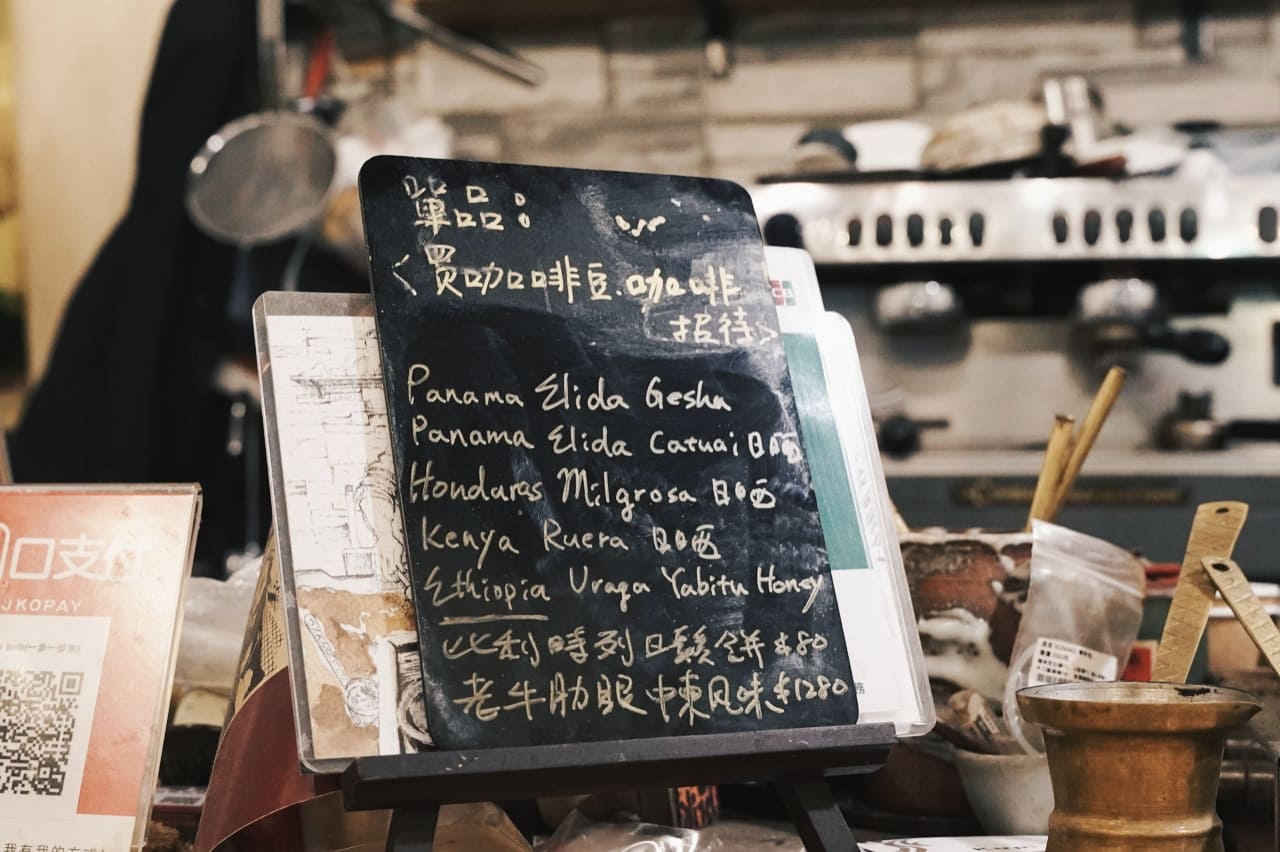 單品：
<買咖啡豆.咖啡
招待>
Panama Elida Gesha
Panama Elida Catuai 日晒
Honduras Milgrosa 日晒
Kenya Ruera 日晒
Ethiopia Uraga Yabitu Honey
比利時列日鬆餅 $80
老牛肋眼中東風味 $1280
口支付
JKOPAY